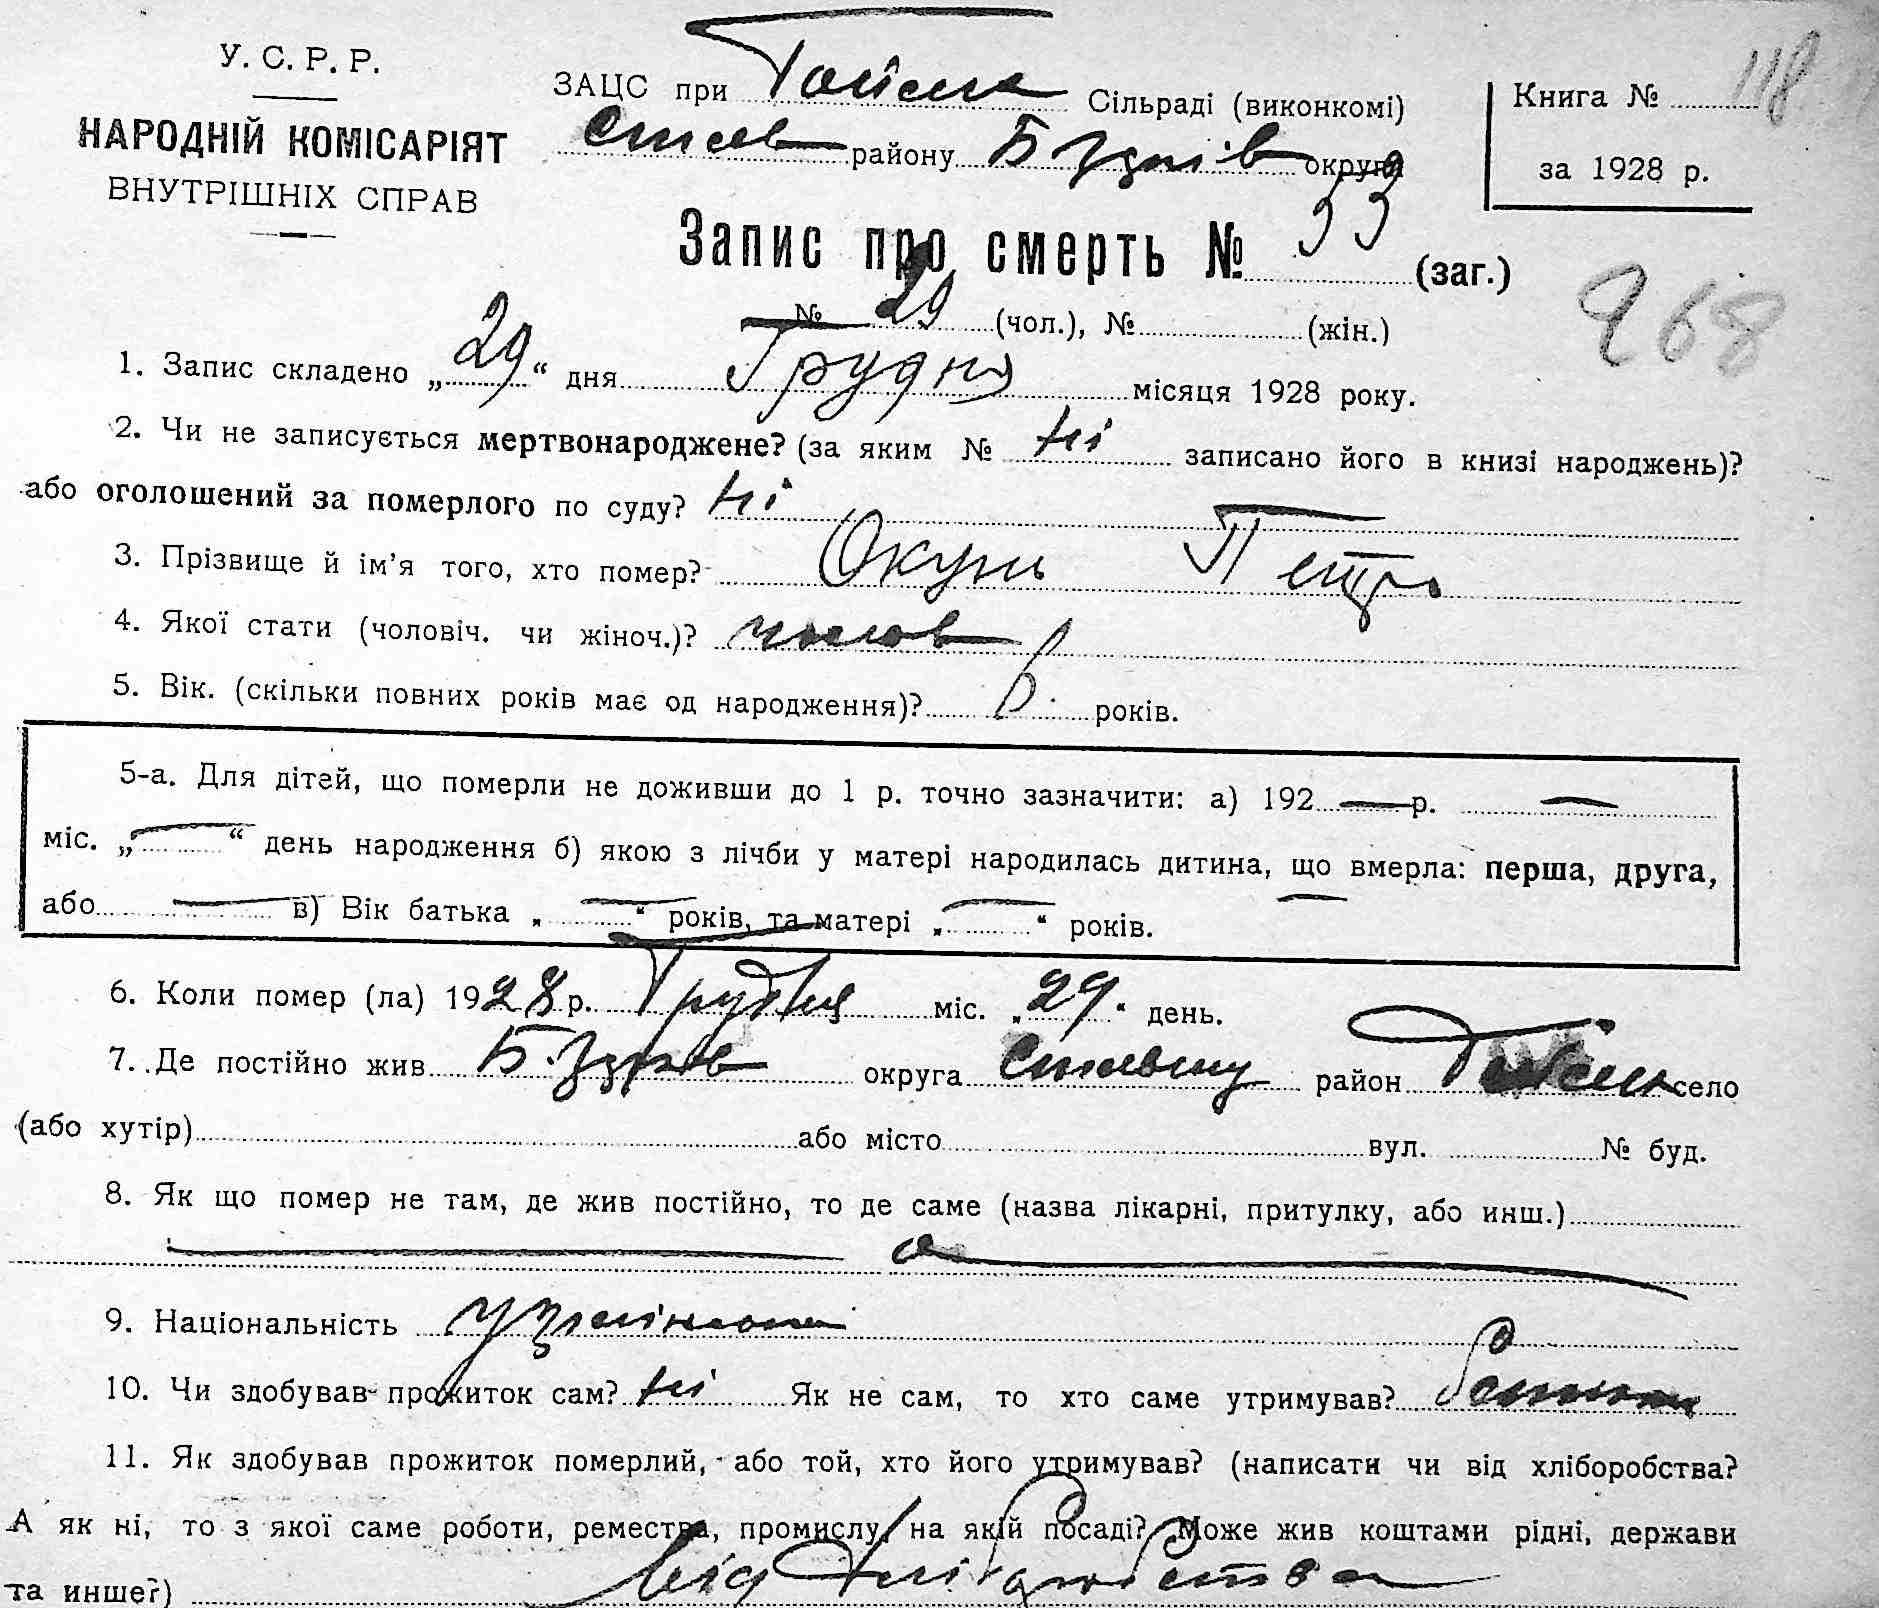 У. С. Р. Р.
НАРОДНІЙ КОМІСАРІЯТ
ВНУТРІШНІХ СПРАВ
ЗАЦС при Сільраді (виконкомі)
району округи
Книга № 118
за 1928 р.
Запис про смерть № 53 (заг.)
968
№ 29 (чол.), № (жін.)
1. Запис складено „29“ дня Грудня місяця 1928 року.
2. Чи не записується мертвонароджене? (за яким № ні записано його в книзі народжень)?
або оголошений за померлого по суду? ні
3. Прізвище й ім’я того, хто помер? Окунь Петро
4. Якої стати (чоловіч. чи жіноч.)? чолов
5. Вік. (скільки повних років має од народження)? 6 років.
5-а. Для дітей, що померли не доживши до 1 р. точно зазначити: а) 192 — р. —
міс. „—“ день народження б) якою з лічби у матері народилась дитина, що вмерла: перша, друга,
або — в) Вік батька „—“ років, та матері „—“ років.
6. Коли помер (ла) 1928 р. Грудня міс. „29“ день.
7. Де постійно жив округа район село
(або хутір) або місто вул. № буд.
8. Як що помер не там, де жив постійно, то де саме (назва лікарні, притулку, або инш.)
9. Національність
10. Чи здобував прожиток сам? ні Як не сам, то хто саме утримував? батьки
11. Як здобував прожиток померлий, або той, хто його утримував? (написати чи від хліборобства?
А як ні, то з якої саме роботи, ремества, промислу, на якій посаді? Може жив коштами рідні, держави
та инше?) від хліборобства